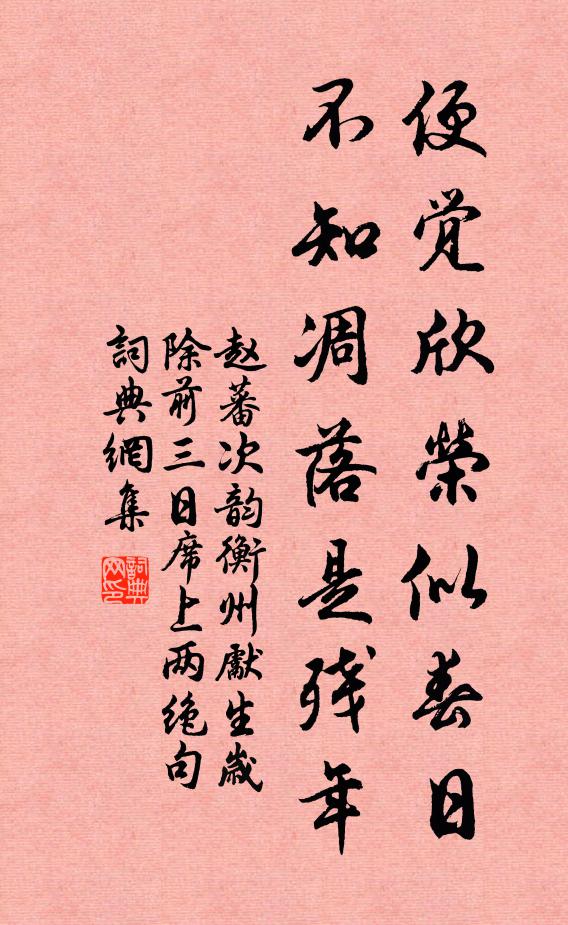 便觉欣荣似春日
不知凋落是残年
赵蕃次韵衡州献生岁
除前三日席上两绝句
詞典網集
詞典
网印